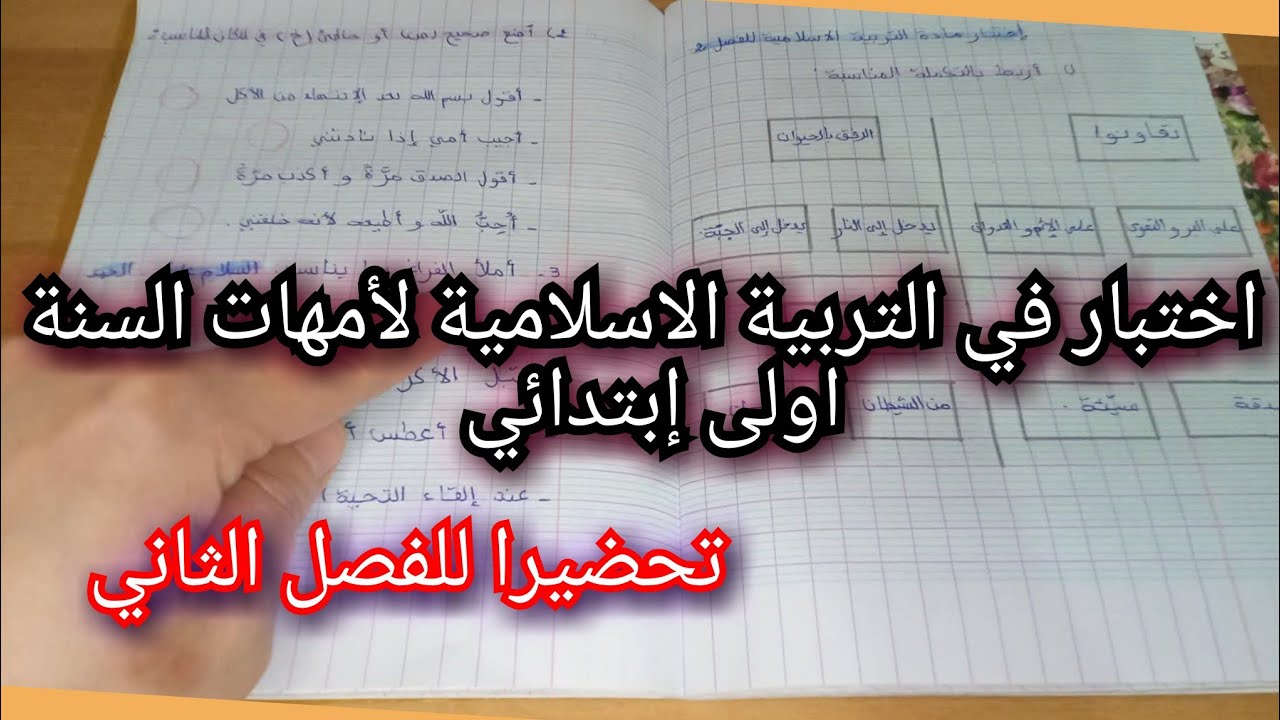 إختبار مادة التربية الاسلامية للفصل 2
1) أربط بالتكملة المناسبة :
تعاونوا
الرفق بالحيوان
على البر و التقوى
على الإثم و العدوان
يدخل إلى النار
يدخل إلى الجنة.
سيئة.
من الشيطان
2) أضع صحيح أو خاطئ (خ) في المكان المناسب
- أقول بسم الله بعد الإنتهاء من الأكل
- أجيب أمي إذا نادتني
- أقول الصدق مرَّةً و أكذب مرَّة
- أُحِبُّ اللّه و أطيعه لأنه خلقني .
3- أملأ الفراغ يناسب السلام الحمد
الأكل
أعطس
- عند إلقاء التحية
اختبار في التربية الاسلامية لأمهات السنة
اولى إبتدائي
تحضيرا للفصل الثاني